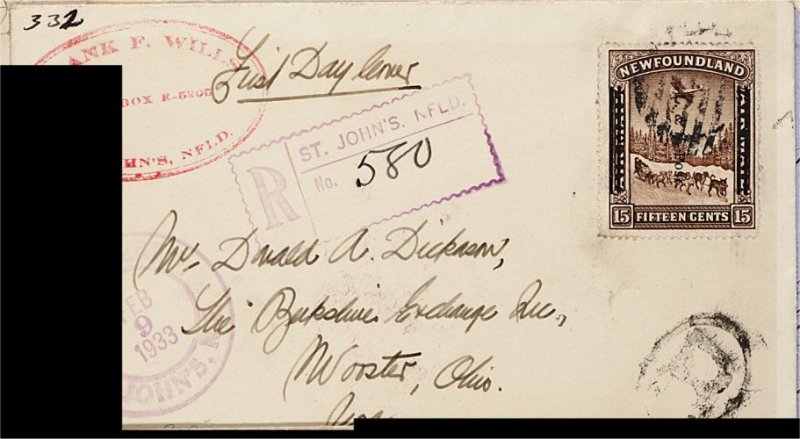 332
ANK F. WILLS
BOX E-5202
HN'S, NFLD.
First Day Cover
ST. JOHN'S, NFLD.
R No. 580
NEWFOUNDLAND
15 FIFTEEN CENTS 15
Mr. Donald A. Dickason,
The Berkshire Exchange Inc.,
Wooster, Ohio.
FEB
9
1933
JOHN'S, N